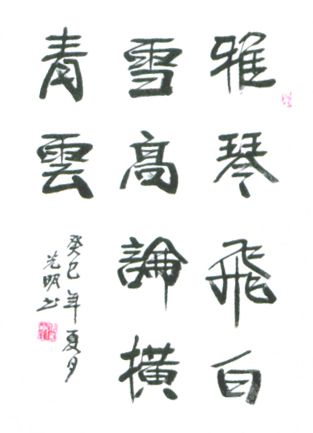 雅琴飛白
雪高論橫
青雲
癸巳年夏月
光明书